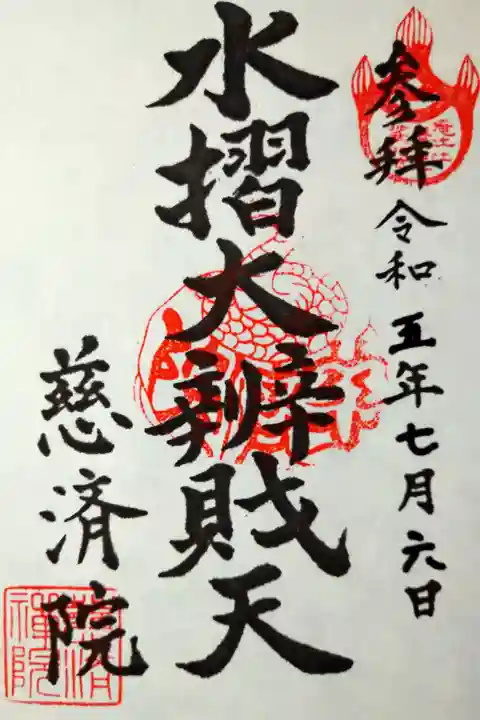 参拜 令和五年七月六日
水摺大辨財天
慈済院